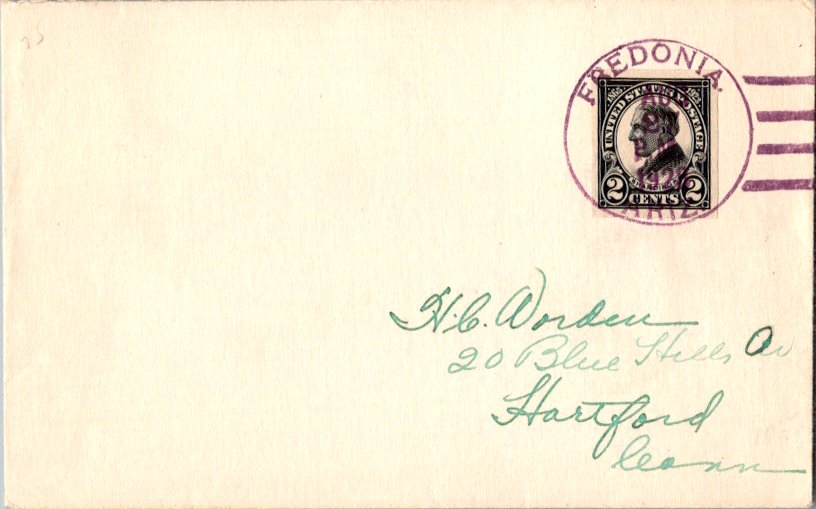 FREDONIA.
1865 1923
UNITED STATES POSTAGE
HARDING
2 CENTS 2
ARIZ.
H. C. Worden
20 Blue Hills Av
Hartford
Conn